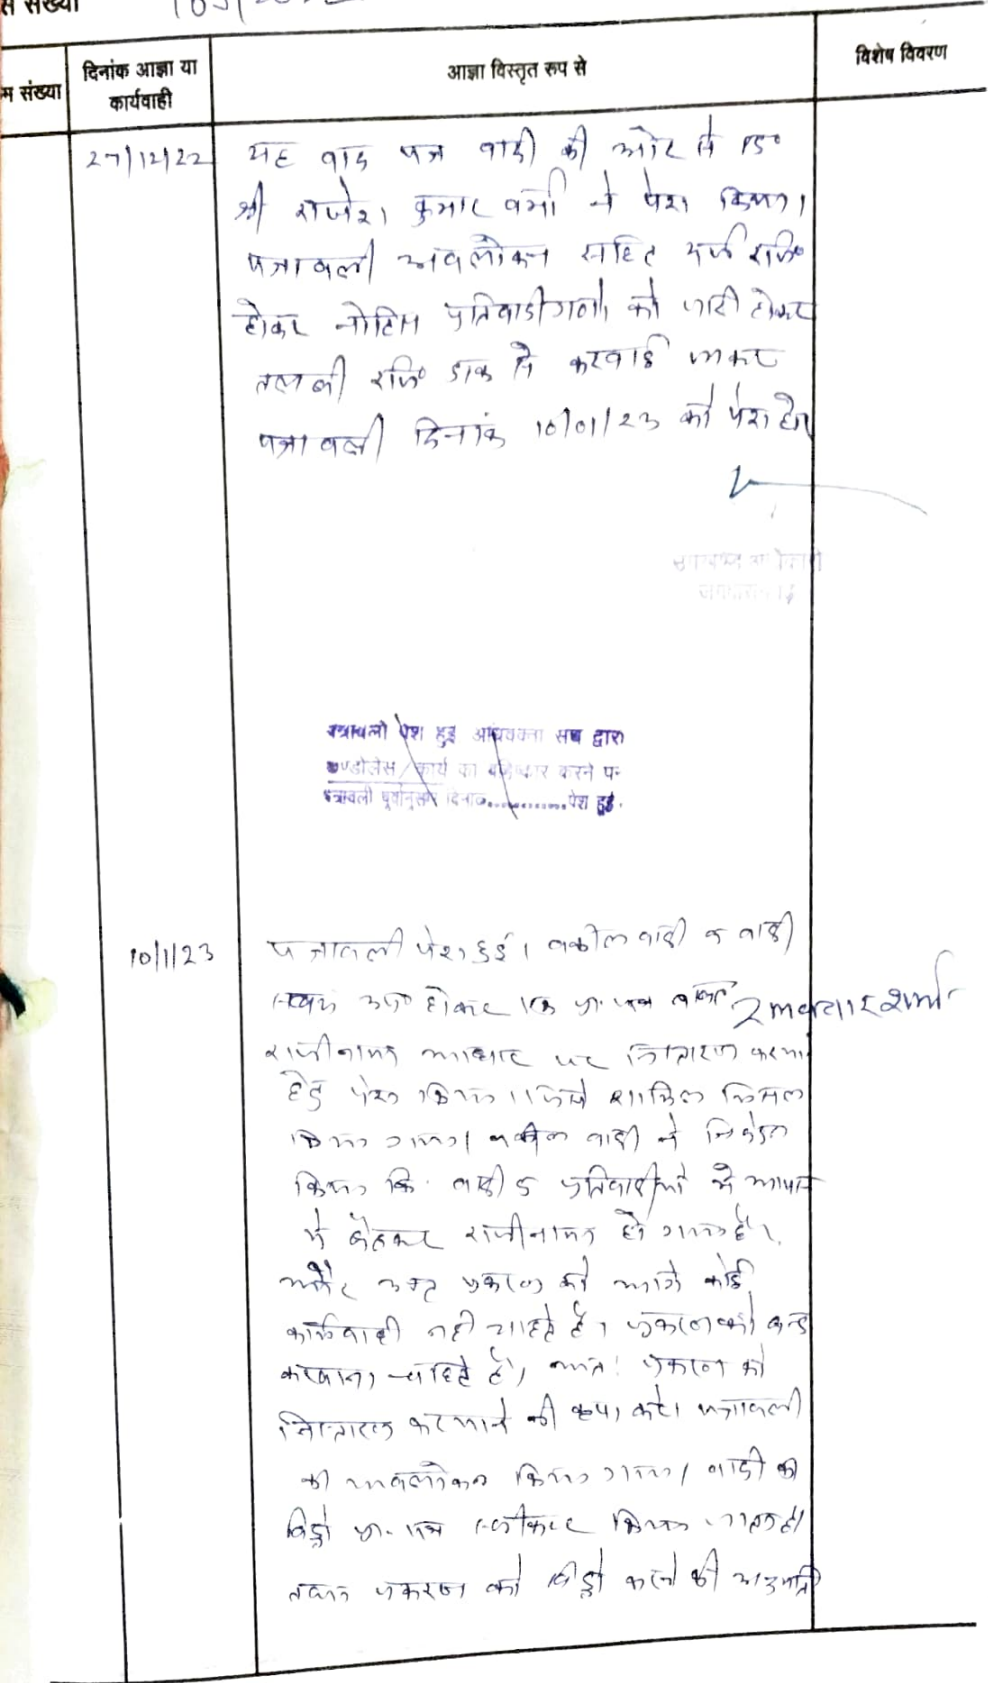 स संख्या
म संख्या
दिनांक आज्ञा या
कार्यवाही
आज्ञा विस्तृत रूप से
विशेष विवरण
27/12/22
यह वाद पत्र वादी की ओर से
श्री राजेश कुमार वर्मा ने पेश किया।
पत्रावली अवलोकन सहित दर्ज रजि०
होकर नोटिस प्रतिवादीगणों को जारी होकर
तलबी रजि० डाक से करवाई जाकर
पत्रावली दिनांक 10/01/23 को पेश हो।
उपखण्ड अधिकारी
पत्रावली पेश हुई अधिवक्ता संघ द्वारा
कण्डोलेंस/कार्य का बहिष्कार करने पर
पत्रावली पूर्वानुसार दिनांक.............पेश हुई.
10/1/23
पत्रावली पेश हुई। वकील वादी व वादी
स्वयं उप० होकर एक प्रा. पत्र बाबत
राजीनामा आधार पर निस्तारण करवाने
हेतु पेश किया। जिसे शामिल मिसल
किया गया। वकील वादी ने निवेदन
किया कि वादी व प्रतिवादीगणों में आपस
में बैठकर राजीनामा हो गया है।
और उक्त प्रकरण को आगे कोई
कार्यवाही नहीं चाहते हैं। प्रकरण को बन्द
करवाना चाहते हैं। अतः प्रकरण को
निस्तारण करमाने की कृपा करें। पत्रावली
का अवलोकन किया गया। वादी का
विड्रो प्रा. पत्र स्वीकार किया जाता है।
तथा प्रकरण को विड्रो करने की अनुमति